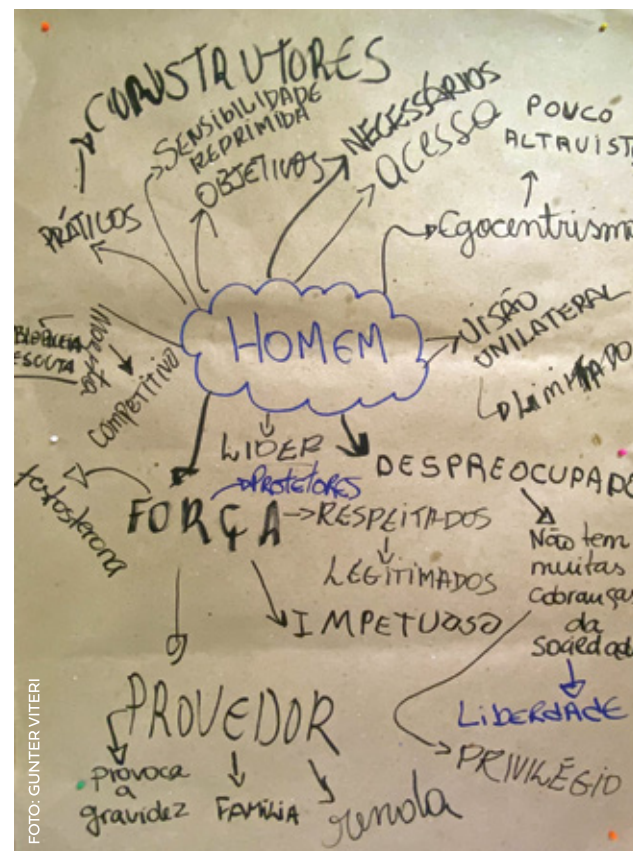 CONSTRUTORES
SENSIBILIDADE
REPRIMIDA
OBJETIVOS
NECESSÁRIOS
acesso
POUCO
ALTRUIST
PRÁTICOS
Egocentrism
HOMEM
VISÃO
UNILATERAL
LIMITADO
BLOQUEIA
ESCUTA
COMPETITIVO
LIDER
PROTETORES
DESPREOCUPAD
testosterona
FORÇA
RESPEITADOS
LEGITIMADOS
IMPETUOSO
Não tem
muitas
cobranças
da
sociedad
LIBERDADE
PRIVILÉGIO
PROVEDOR
provoca
a
gravidez
FAMÍLIA
renda
FOTO: GUNTER VITERI